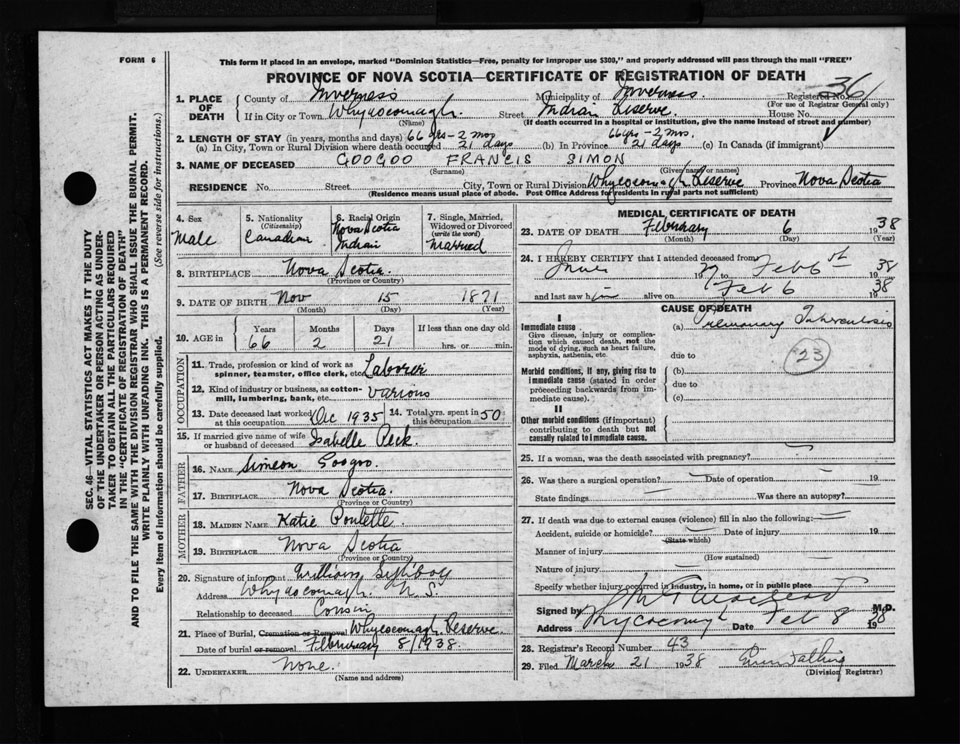 FORM 6
This form if placed in an envelope, marked "Dominion Statistics—Free, penalty for improper use $300," and properly addressed will pass through the mail "FREE"
PROVINCE OF NOVA SCOTIA—CERTIFICATE OF REGISTRATION OF DEATH
1. PLACE OF DEATH
County of Inverness Municipality of Inverness. Registered No. 361
(For use of Registrar General only)
If in City or Town Whycocomagh. (Name) Street Indian Reserve. House No.
(If death occurred in a hospital or institution, give the name instead of street and number)
2. LENGTH OF STAY (in years, months and days) 66 yrs - 2 mos 66 yrs - 2 mos.
(a) In City, Town or Rural Division where death occurred 21 days (b) In Province 21 days (c) In Canada (if immigrant)
3. NAME OF DECEASED GOOGOO FRANCIS SIMON
(Surname) (Given name or names)
RESIDENCE No. Street City, Town or Rural Division Whycocomagh Reserve Province Nova Scotia
(Residence means usual place of abode. Post Office Address for residents in rural parts not sufficient)
4. Sex Male
5. Nationality (Citizenship) Canadian
6. Racial Origin Nova Scotia Indian
7. Single, Married, Widowed or Divorced (write the word) Married
8. BIRTHPLACE Nova Scotia.
(Province or Country)
9. DATE OF BIRTH Nov 15 1871
(Month) (Day) (Year)
10. AGE in Years 66 Months 2 Days 21 If less than one day old hrs. or min.
OCCUPATION
11. Trade, profession or kind of work as spinner, teamster, office clerk, etc. Laborer
12. Kind of industry or business, as cotton-mill, lumbering, bank, etc. various
13. Date deceased last worked at this occupation Dec 1935 14. Total yrs. spent in this occupation 50
15. If married give name of wife or husband of deceased Isabelle Peck.
FATHER
16. NAME Simeon Googoo.
17. BIRTHPLACE Nova Scotia.
(Province or Country)
MOTHER
18. MAIDEN NAME Katie Poulette.
19. BIRTHPLACE Nova Scotia
(Province or Country)
20. Signature of informant William
Address Whycocomagh. N.S.
Relationship to deceased Cousin
21. Place of Burial, Cremation or Removal Whycocomagh Reserve.
Date of burial or removal February 8/1938.
22. UNDERTAKER None.
(Name and address)
MEDICAL CERTIFICATE OF DEATH
23. DATE OF DEATH February 6 1938
(Month) (Day) (Year)
24. I HEREBY CERTIFY that I attended deceased from
19 to Feb 6th 1938
and last saw him alive on Feb 6 1938
CAUSE OF DEATH
I
Immediate cause
Give disease, injury or complication which caused death, not the mode of dying, such as heart failure, asphyxia, asthenia, etc.
(a) Pulmonary Tuberculosis
due to
23
Morbid conditions, if any, giving rise to immediate cause (stated in order proceeding backwards from immediate cause).
(b)
due to
(c)
II
Other morbid conditions (if important) contributing to death but not causally related to immediate cause.
25. If a woman, was the death associated with pregnancy?
26. Was there a surgical operation? Date of operation 19
State findings Was there an autopsy?
27. If death was due to external causes (violence) fill in also the following:
Accident, suicide or homicide? Date of injury 19
(State which)
Manner of injury
(How sustained)
Nature of injury
Specify whether injury occurred in industry, in home, or in public place
Signed by M.D.
Address Date Feb 8 1938
28. Registrar's Record Number 43
29. Filed March 21 1938
(Division Registrar)
SEC. 46—VITAL STATISTICS ACT MAKES IT THE DUTY
OF THE UNDERTAKER OR PERSON ACTING AS UNDER-
TAKER TO OBTAIN ALL THE PARTICULARS REQUIRED
IN THE "CERTIFICATE OF REGISTRATION OF DEATH"
AND TO FILE THE SAME WITH THE DIVISION REGISTRAR WHO SHALL ISSUE THE BURIAL PERMIT.
WRITE PLAINLY WITH UNFADING INK. THIS IS A PERMANENT RECORD.
Every item of information should be carefully supplied. (See reverse side for instructions.)